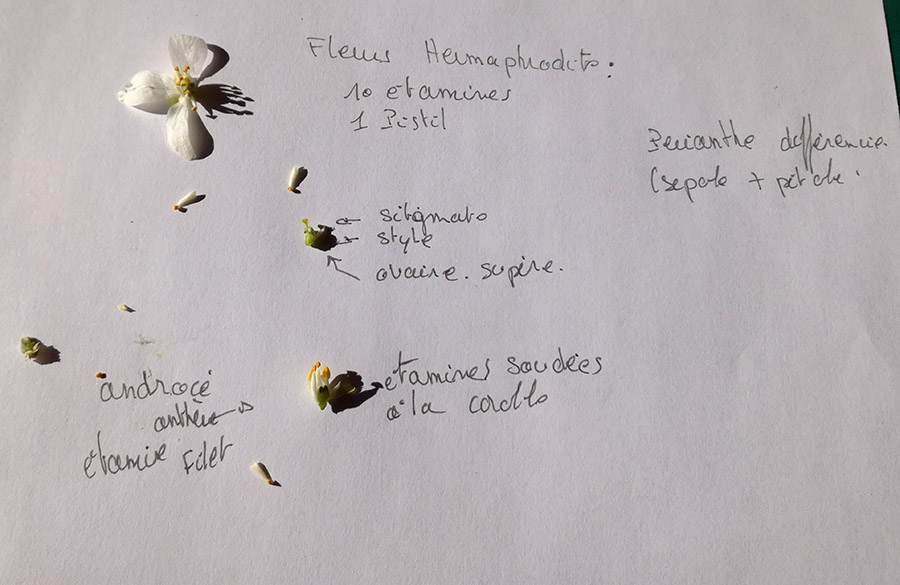 Fleurs Hermaphrodite:
10 etamines
1 Pistil
Perianthe différencié.
(sepale + pétale.
stigmate
style
ovaire. supère.
etamines soudées
à la corolle
androcé
anthère →
étamine Filet